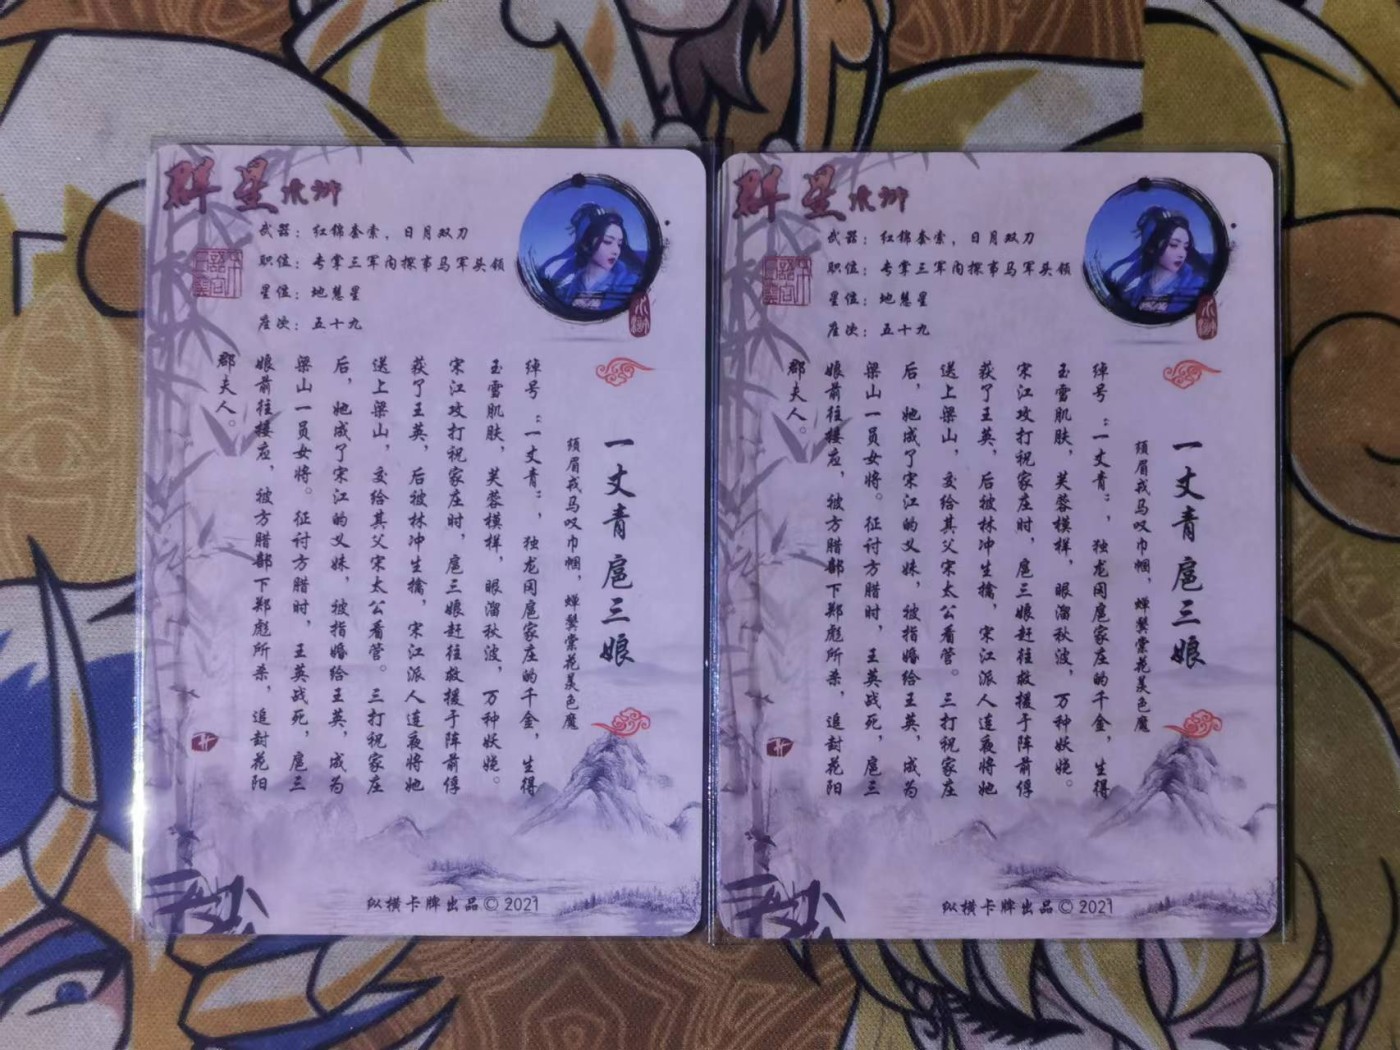 群星水浒
武器：红锦套索，日月双刀
职位：专掌三军内探事马军头领
星位：地慧星
座次：五十九
水浒
一丈青 扈三娘
须眉戎马叹巾帼，蝉鬓棠花羡色魔
绰号："一丈青"，独龙冈扈家庄的千金，生得
玉雪肌肤，芙蓉模样，眼溜秋波，万种妖娆。
宋江攻打祝家庄时，扈三娘赶往救援于阵前俘
获了王英，后被林冲生擒，宋江派人连夜将她
送上梁山，交给其父宋太公看管。三打祝家庄
后，她成了宋江的义妹，被指婚给王英，成为
梁山一员女将。征讨方腊时，王英战死，扈三
娘前往接应，被方腊部下郑彪所杀，追封花阳
郡夫人。
纵横卡牌出品© 2021
群星水浒
武器：红锦套索，日月双刀
职位：专掌三军内探事马军头领
星位：地慧星
座次：五十九
水浒
一丈青 扈三娘
须眉戎马叹巾帼，蝉鬓棠花羡色魔
绰号："一丈青"，独龙冈扈家庄的千金，生得
玉雪肌肤，芙蓉模样，眼溜秋波，万种妖娆。
宋江攻打祝家庄时，扈三娘赶往救援于阵前俘
获了王英，后被林冲生擒，宋江派人连夜将她
送上梁山，交给其父宋太公看管。三打祝家庄
后，她成了宋江的义妹，被指婚给王英，成为
梁山一员女将。征讨方腊时，王英战死，扈三
娘前往接应，被方腊部下郑彪所杀，追封花阳
郡夫人。
纵横卡牌出品© 2021